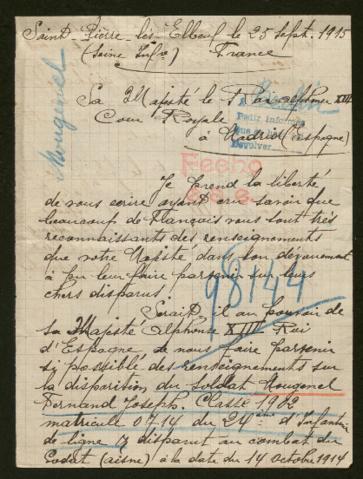 Saint-Pierre-lès-Elbeuf le 25 sept. 1915
(Seine Infre) France
Mougenel
Berlin
Sa Majesté le Roi Alphonse XIII
Cour Royale
à Madrid (Espagne)
Fecho
Je prend la liberté
de vous écrire ayant cru savoir que
beaucoup de Français vous sont très
reconnaissants des renseignements
que votre Majesté dans son dévouement
a pu leur faire parvenir sur leurs
chers disparus.
98144
Serait il au pouvoir de
sa Majesté Alphonse XIII Roi
d'Espagne de nous faire parvenir
si possible des renseignements sur
la disparition du soldat Mougenel
Fernand Joseph. Classe 1902
matricule 0714 du 24ème d'Infanterie
de ligne disparut au combat du
Godat (Aisne) à la date du 14 octobre 1914